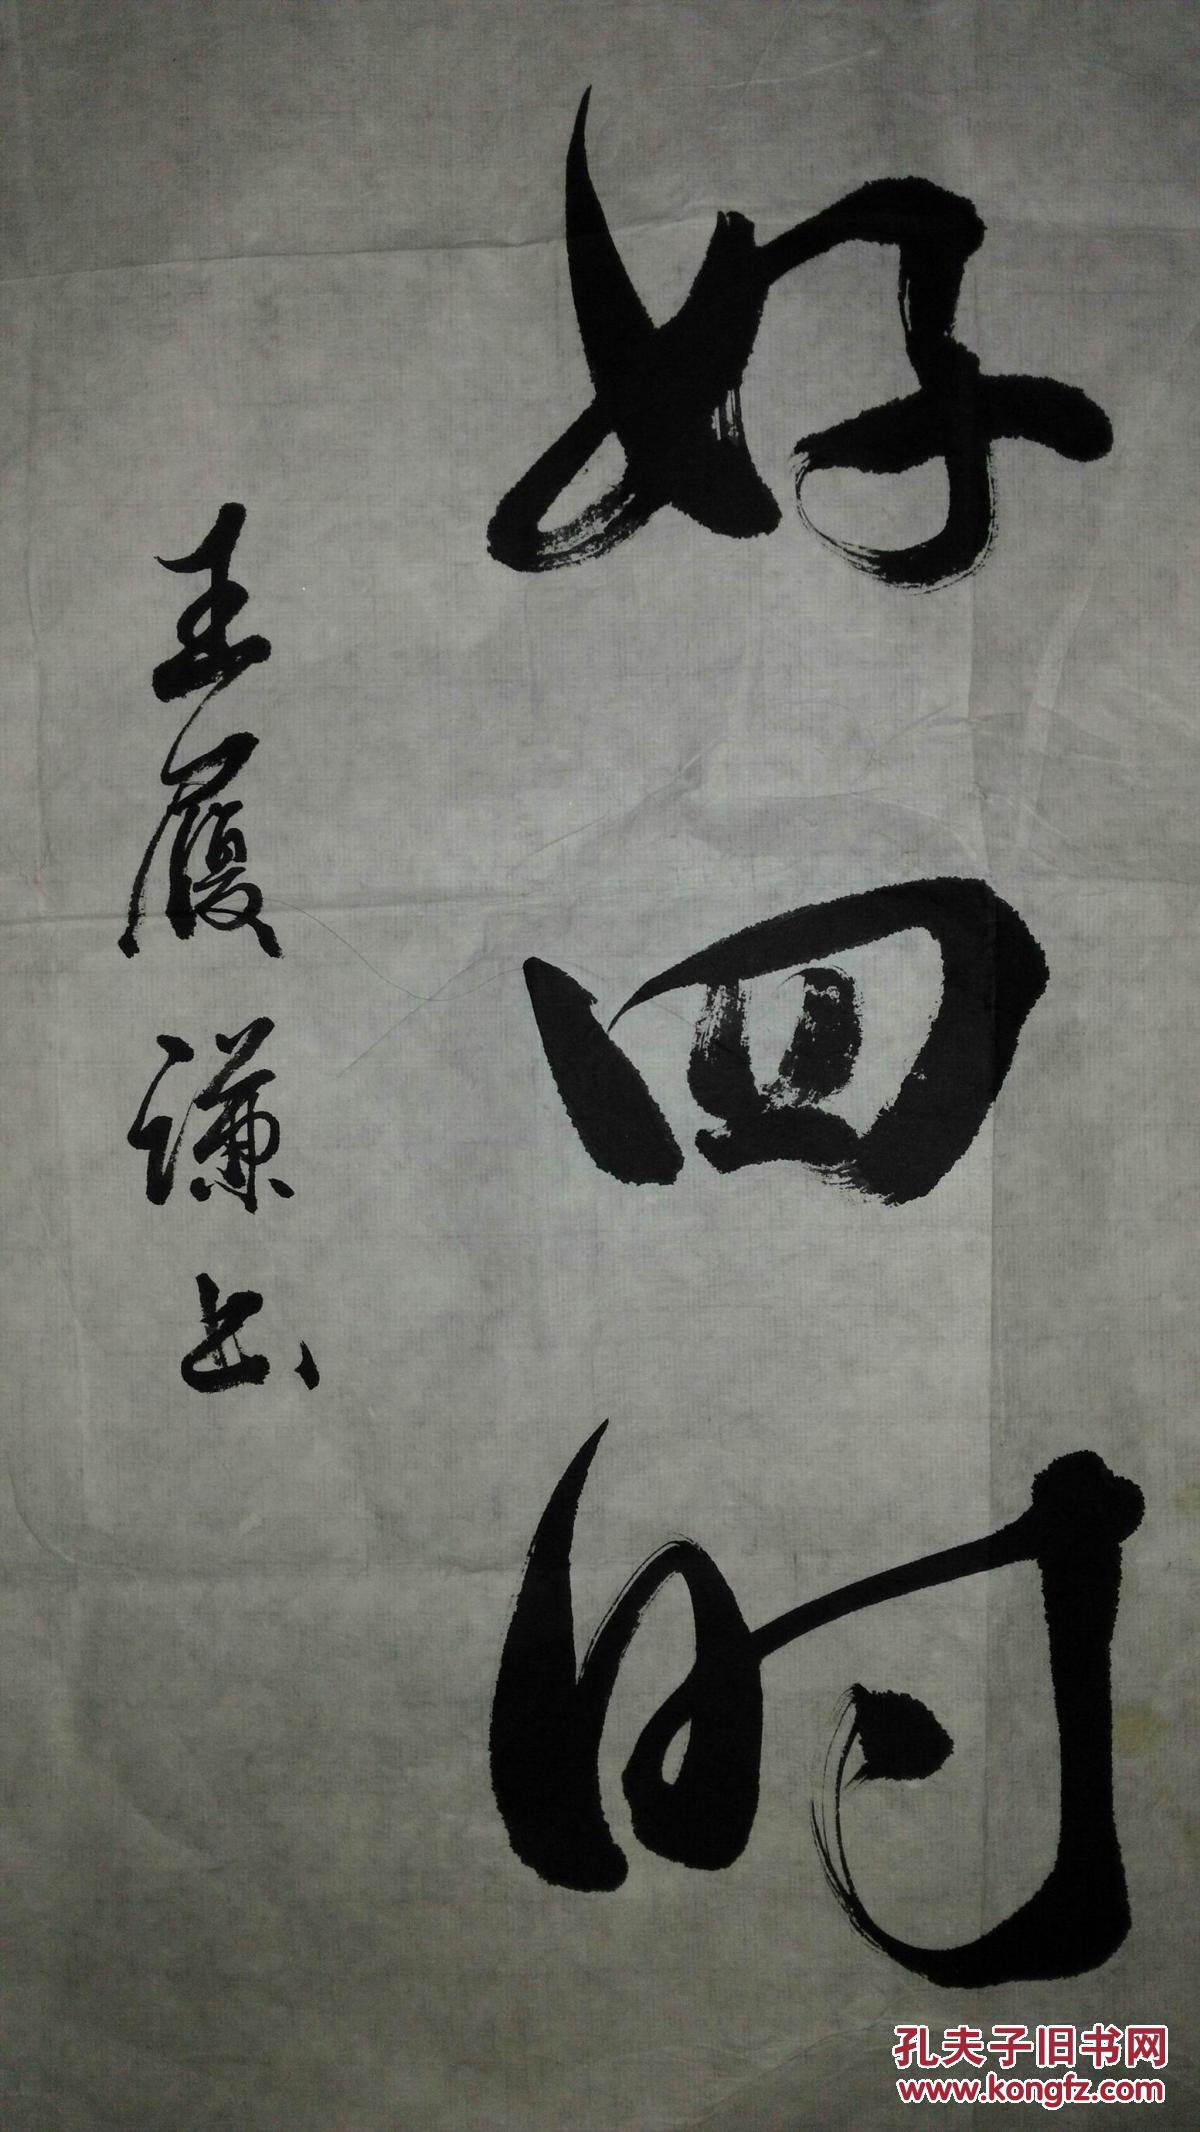 好四时
王履谦书
孔夫子旧书网
www.kongfz.com